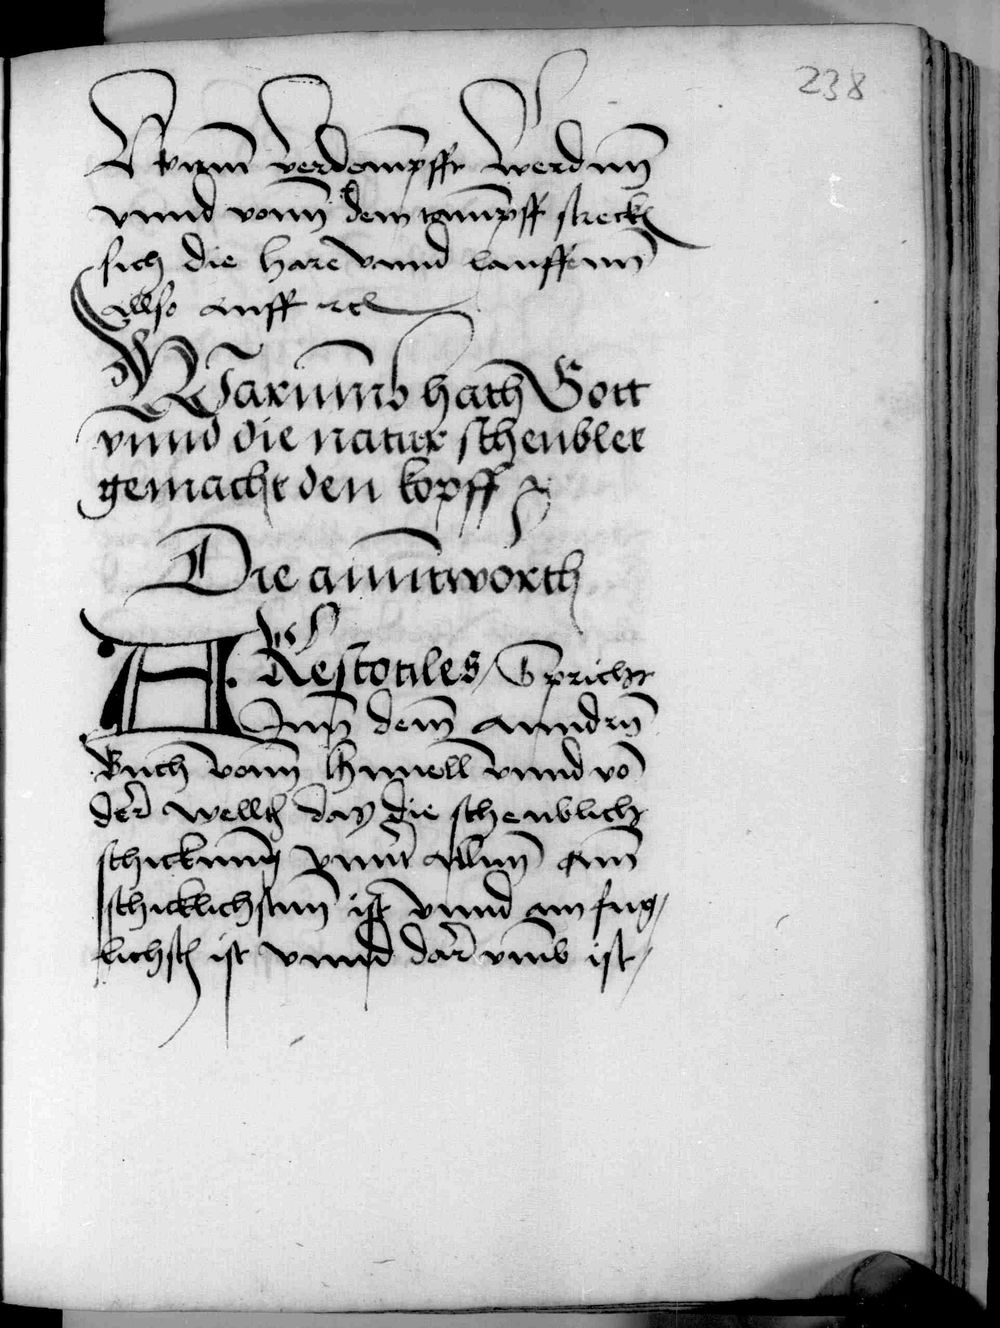 238
verdempfft werdnn
vnnd vonn dem tampff streck
sich die hare vnnd lauffenn
allso auff etc
Warumb hath Gott
vnnd die natur scheubler
gemacht den kopff
Die anntworth
ARestotiles / Spricht
Inn dem anndrn
Buch vonn himell vnnd vō
der wellth das die scheublich
schickung vnntr allnn am
schicklichstnn ist vnnd am fug/
lichsten ist vnnd darumb ist /